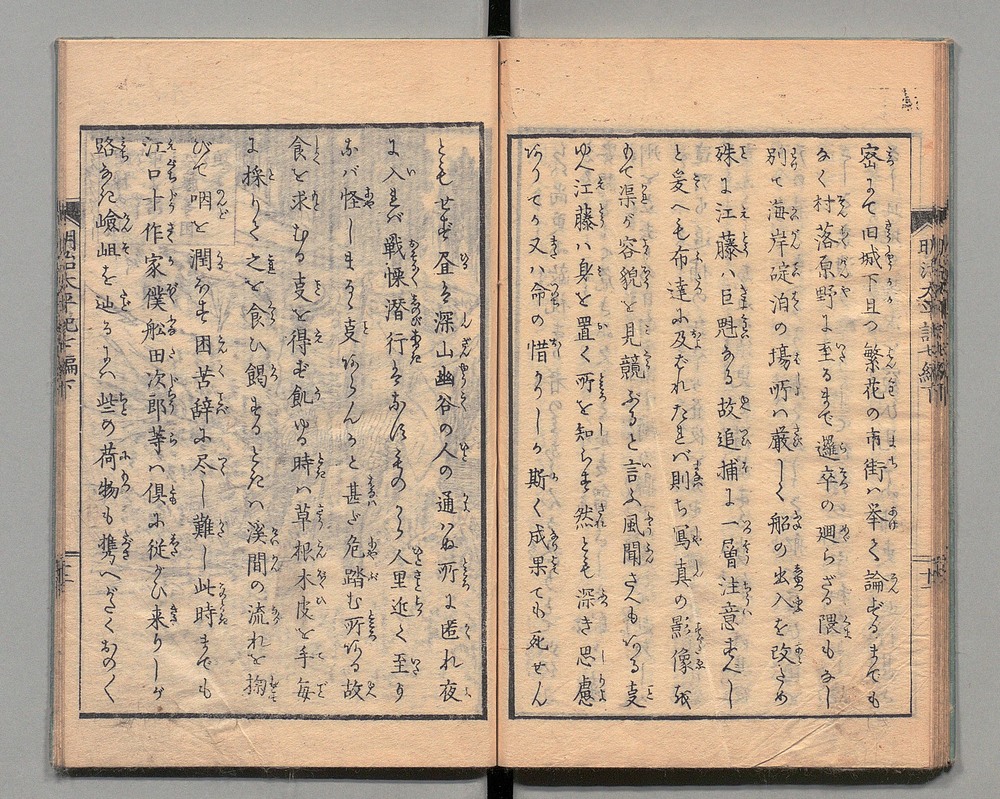 密にて旧城下且つ繁花の市街ハ挙て論ずるまでも
なく村落原野に至るまで邏卒の廻らざる隈もなし
別て海岸碇泊の場所ハ厳しく船の出入を改ため
殊に江藤ハ巨魁なる故追捕に一層注意すべし
と爰へも布達に及ばれたれバ則ち写真の影像を
もて渠が容貌を見競ぶると言ふ風聞さへもある事
ゆへ江藤ハ身を置く所を知らず然とも深き思慮
ありてか又ハ命の惜かりしか斯く成果ても死せん
ともせず昼は深山幽谷の人の通ハぬ所に匿れ夜
に入れバ戦慄潜行はなすものから人里近く至り
なバ怪しまるゝ事あらんかと甚だ危踏む所ある故
食を求むる事を得ず飢ゆる時ハ草根木皮を手毎
に採りて之を食ひ餲するときハ渓間の流れを掬
びて咽を潤ほす困苦辞に尽し難し此時までも
江口十作家僕船田次郎等ハ倶に従がひ来りしが
路なき嶮岨を辿るにハ些の荷物も携へがたくおのく
明治太平記七編下
十二
明治太平記七編下
十三